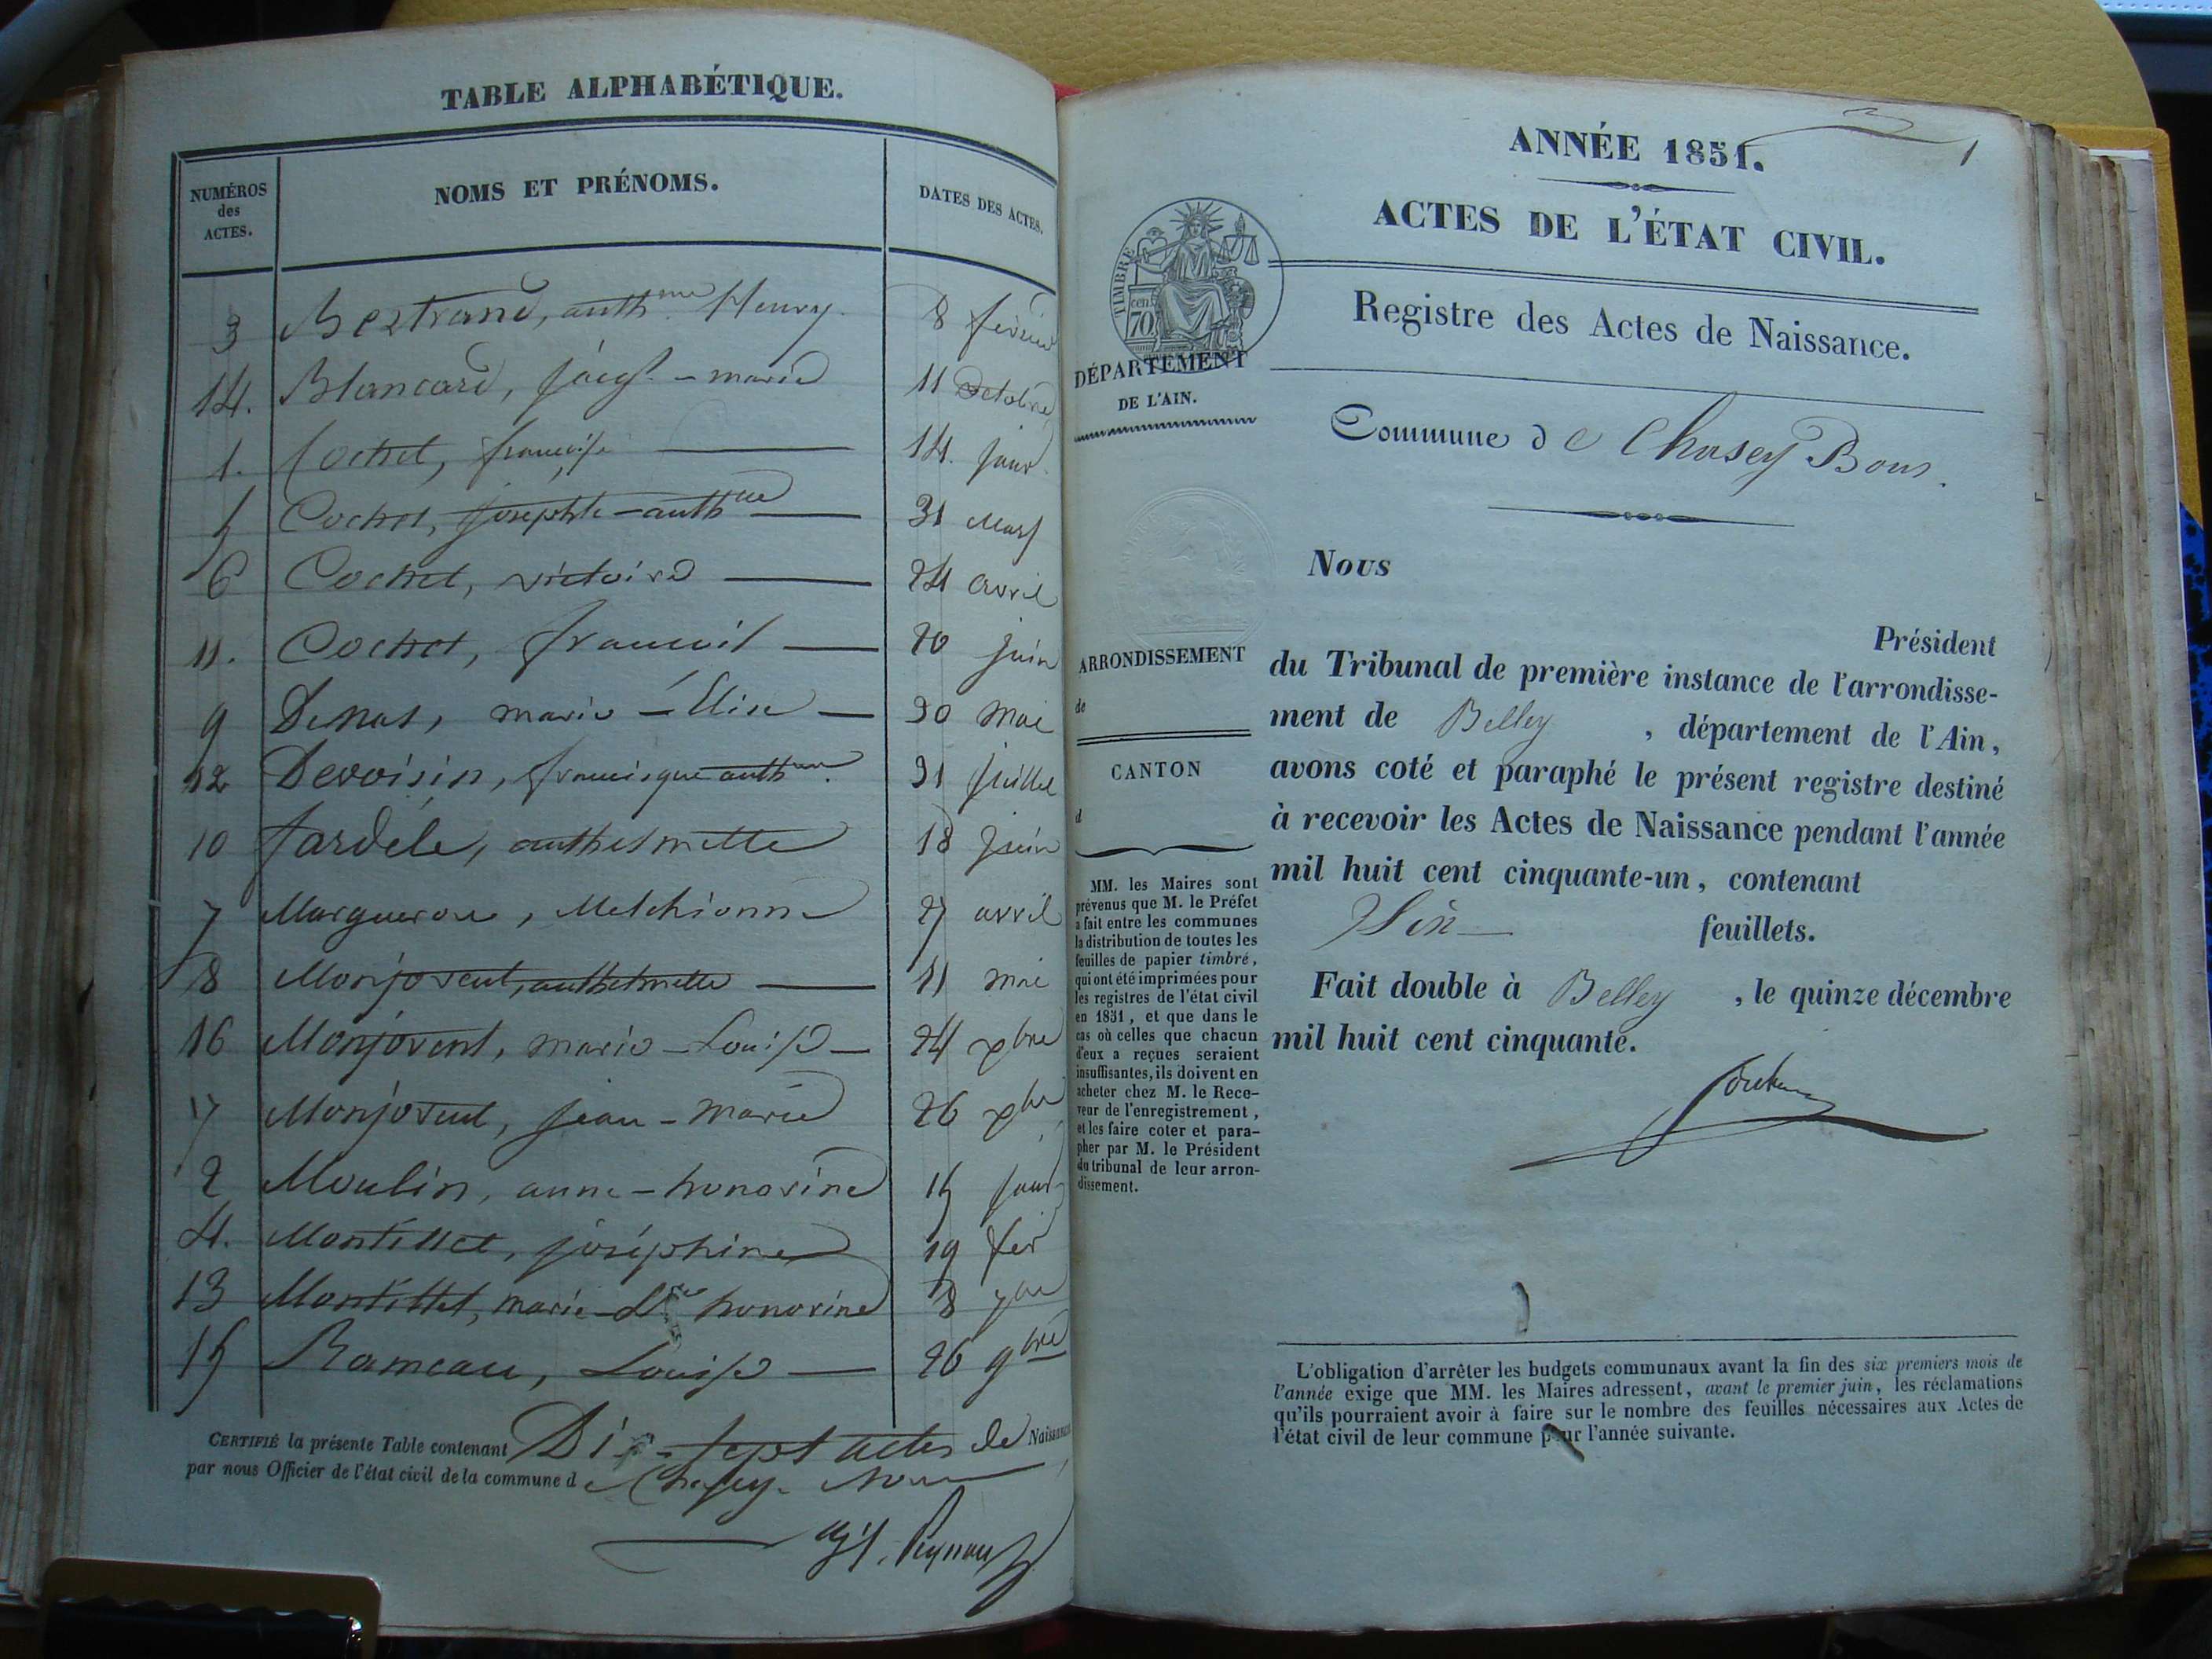 TABLE ALPHABÉTIQUE.
NUMÉROS des ACTES. NOMS ET PRÉNOMS. DATES DES ACTES.
3 Bertrand, anth.me Henry 8 février
14. Blancard, marie 11 octobre
1. Cochet, 14. janv.
5 Cochet, josephte-anth.me 31 Mars
6 Cochet, victoire 24 avril
11. Cochet, 20 juin
9 marie-Élise 30 mai
12 Devoisin, francisque anth.me 31 juillet
10 Jardele, anthelmette 18 juin
7 Melchionne 27 avril
8 Monjovent, anthelmette 11 mai
16 Monjovent, marie-Louise 24 xbre
17 Monjovent, jean-marie 26 xbre
2 Moulin, anne-honorine 15 janv
4. Montillet, joséphine 19 fév
13 Montillet, marie honorine 8 7bre
15 Rameau, Louise 26 9bre
CERTIFIÉ la présente Table contenant Dix-sept actes de Naissance
par nous Officier de l'état civil de la commune de Chasey-Bons
1
ANNÉE 1851.
ACTES DE L'ÉTAT CIVIL.
Registre des Actes de Naissance.
TIMBRE
cen. 70
DÉPARTEMENT
DE L'AIN.
Commune de Chasey Bons.
Nous
Président
ARRONDISSEMENT
de
CANTON
d
du Tribunal de première instance de l'arrondisse-
ment de Belley, département de l'Ain,
avons coté et paraphé le présent registre destiné
à recevoir les Actes de Naissance pendant l'année
mil huit cent cinquante-un, contenant
feuillets.
Fait double à Belley, le quinze décembre
mil huit cent cinquante.
MM. les Maires sont
prévenus que M. le Préfet
a fait entre les communes
la distribution de toutes les
feuilles de papier timbré,
qui ont été imprimées pour
les registres de l'état civil
en 1851, et que dans le
cas où celles que chacun
d'eux a reçues seraient
insuffisantes, ils doivent en
acheter chez M. le Rece-
veur de l'enregistrement,
et les faire coter et para-
pher par M. le Président
du tribunal de leur arron-
dissement.
L'obligation d'arrêter les budgets communaux avant la fin des six premiers mois de
l'année exige que MM. les Maires adressent, avant le premier juin, les réclamations
qu'ils pourraient avoir à faire sur le nombre des feuilles nécessaires aux Actes de
l'état civil de leur commune pour l'année suivante.